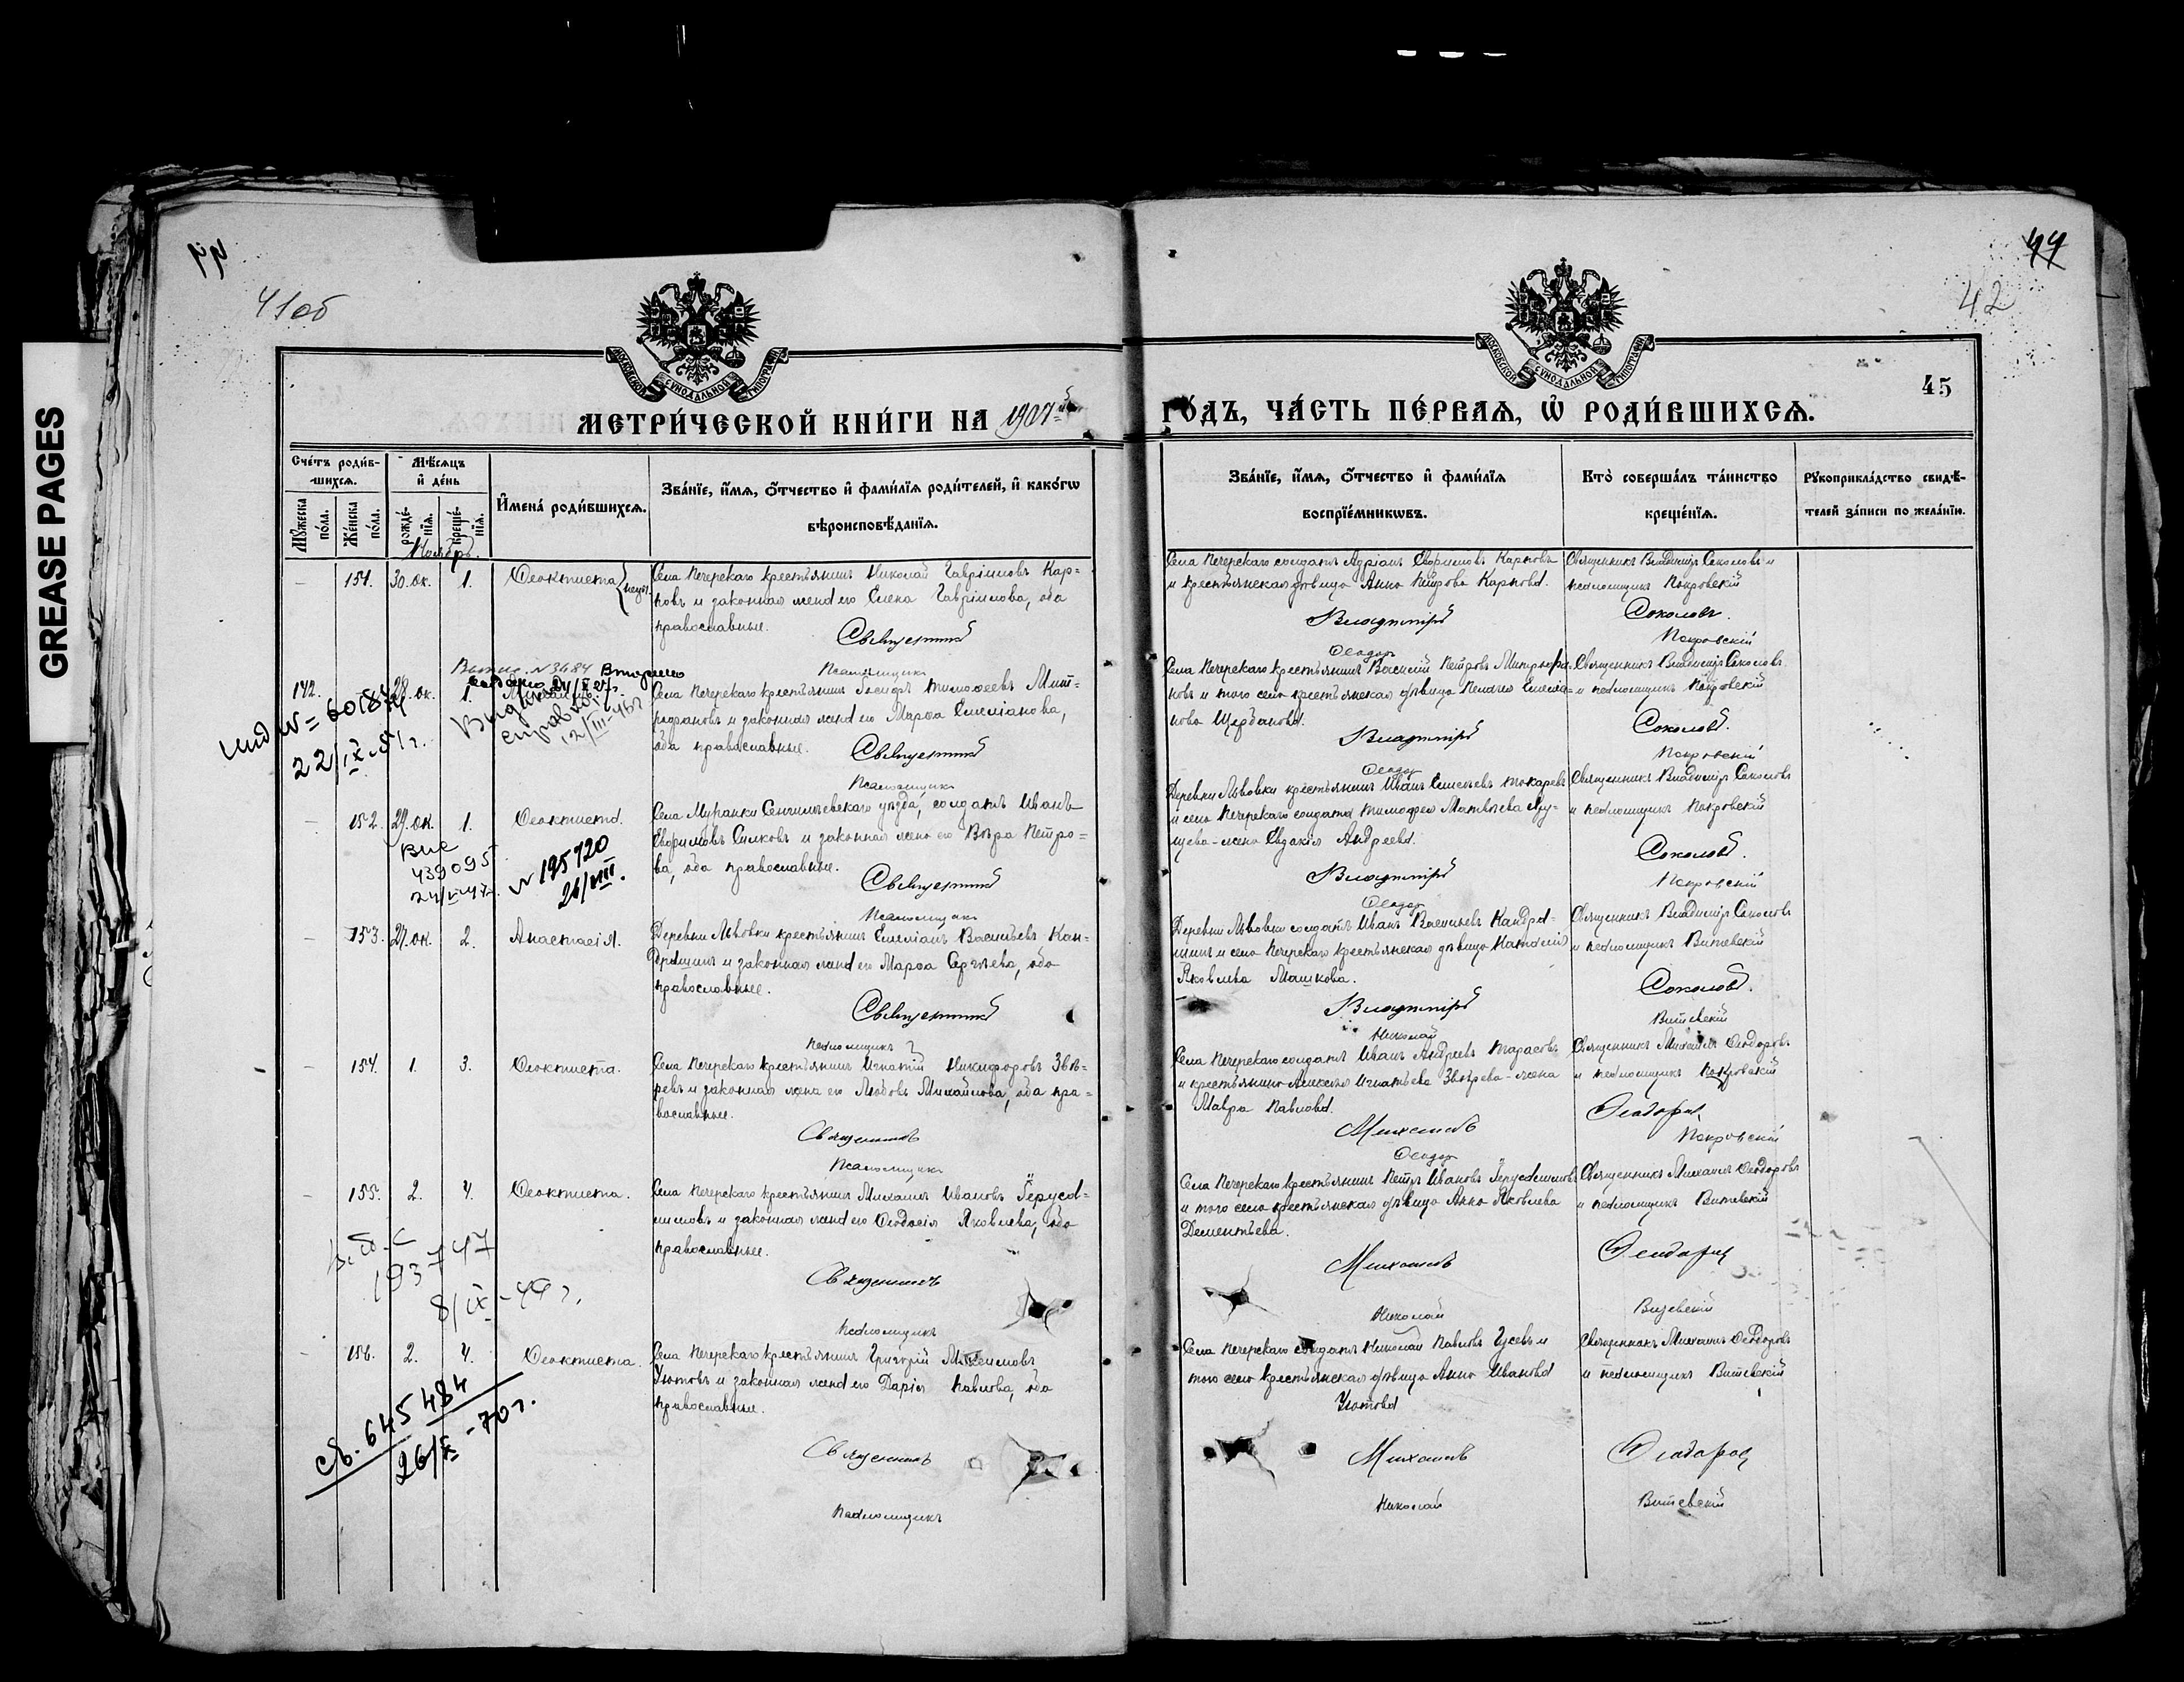 GREASE PAGES
41об
42
45
МОСКОВСКОЙ СѴНОДАЛЬНОЙ ТИПОГРАФІИ
МОСКОВСКОЙ СѴНОДАЛЬНОЙ ТИПОГРАФІИ
МЕТРИ́ЧЕСКОЙ КНИ́ГИ НА 1907й
ГО́ДЪ, ЧА́СТЬ ПЕ́РВАѦ, Ѡ҆ РОДИ́ВШИХСѦ.
Сче́тъ роди́в-
шихсѧ.
Мꙋ́жеска по́ла.
Же́нска по́ла.
Мѣ́сѧцъ и҆ де́нь
рожде́-нїѧ.
креще́-нїѧ.
И҆мена̀ роди́вшихсѧ.
Зва́нїе, и҆́мѧ, ѻ҆́тчество и҆ фами́лїѧ роди́телей, и҆ како́гѡ
вѣроисповѣ́данїѧ.
Зва́нїе, и҆́мѧ, ѻ҆́тчество и҆ фами́лїѧ
воспрїе́мникѡвъ.
Кто̀ соверша́лъ та́инство
креще́нїѧ.
Рꙋкоприкла́дство свидѣ́-
телей за́писи по жела́нїю.
Ноябрь.
151. 30.ок. 1. Феоктиста
Села Печерскаго крестьянинъ Николай Гавріиловъ Кар-
повъ и законная жена его Елена Гавріилова, оба
православные.
Священникъ
Псаломщикъ
Села Печерскаго солдатъ Адріанъ Евфимовъ Карповъ
и крестьянская дѣвица Анна Петрова Карпова.
Владиміръ
Феодор
Священникъ Владиміръ Соколовъ и
псаломщикъ Покровскій
Соколовъ.
Покровскій
142. 29.ок. 1.
22/IX-51г.
12/III-46г
Села Печерскаго крестьянинъ Тимофеевъ Мит-
рофановъ и законная жена его Марфа Емеліанова,
оба православные.
Священникъ
Псаломщикъ
Села Печерскаго крестьянинъ Василій Петровъ Митрофа-
новъ и того села крестьянская дѣвица Емеліа-
нова Щербакова.
Владиміръ
Феодор
Священникъ Владиміръ Соколовъ
и псаломщикъ Покровскій
Соколовъ.
Покровскій
152. 29.ок. 1. Феоктиста.
439095
№ 195720
26/VIII.
Села Муранки Сенгилеевскаго уѣзда, солдатъ Иванъ
Евфимовъ Силковъ и законная жена его Вѣра Петро-
ва, оба православные.
Священникъ
Псаломщикъ
Деревни Львовки крестьянинъ Иванъ Токаревъ
и села Печерскаго солдата Тимофея Матвѣева
жена Евдокія Андреева.
Владиміръ
Феодор
Священникъ Владиміръ Соколовъ
и псаломщикъ Покровскій
Соколовъ.
Покровскій
153. 27.ок. 2. Анастасія.
Деревни Львовки крестьянинъ Емеліанъ Васильевъ Кан-
драшинъ и законная жена его Марфа Сергѣева, оба
православные.
Священникъ
Псаломщикъ
Деревни Львовки солдатъ Иванъ Васильевъ Кандра-
шинъ и села Печерскаго крестьянская дѣвица Наталія
Яковлева Машкова.
Владиміръ
Николай
Священникъ Владиміръ Соколовъ
и псаломщикъ Витевскій
Соколовъ.
Витевскій
154. 1. 3. Феоктиста.
Села Печерскаго крестьянинъ Игнатій Никифоровъ Звѣ-
ревъ и законная жена его Любовь Михайлова, оба пра-
вославные.
Священникъ
Псаломщикъ
Села Печерскаго солдатъ Иванъ Андреевъ Тарасовъ
и крестьянина Алексѣя Игнатьева Звѣрева - жена
Мавра Павлова.
Михаилъ
Феодор
Священникъ Михаилъ Феодоровъ
и псаломщикъ Покровскій
Феодоров
Покровскій
155. 2. 4. Феоктиста.
193747
8/IX-49 г.
Села Печерскаго крестьянинъ Михаилъ Ивановъ Іеруса-
лимовъ и законная жена его Феодосія Яковлева, оба
православные.
Священникъ
Псаломщикъ
Села Печерскаго крестьянинъ Петръ Ивановъ Іерусалимовъ
и того села крестьянская дѣвица Анна Яковлева
Дементьева.
Михаилъ
Николай
Священникъ Михаилъ Феодоровъ
и псаломщикъ Витевскій
Феодоров
Витевскій
156. 2. 4. Феоктиста.
св. 645484
26/X-70г.
Села Печерскаго крестьянинъ Григорій Максимовъ
Утовъ и законная жена его Дарія Павлова, оба
православные.
Священникъ
Псаломщикъ
Села Печерскаго солдатъ Николай Павловъ Гусевъ и
того села крестьянская дѣвица Анна Иванова
Утова
Михаилъ
Николай
Священникъ Михаилъ Феодоровъ
и псаломщикъ Витевскій
Феодоров
Витевскій